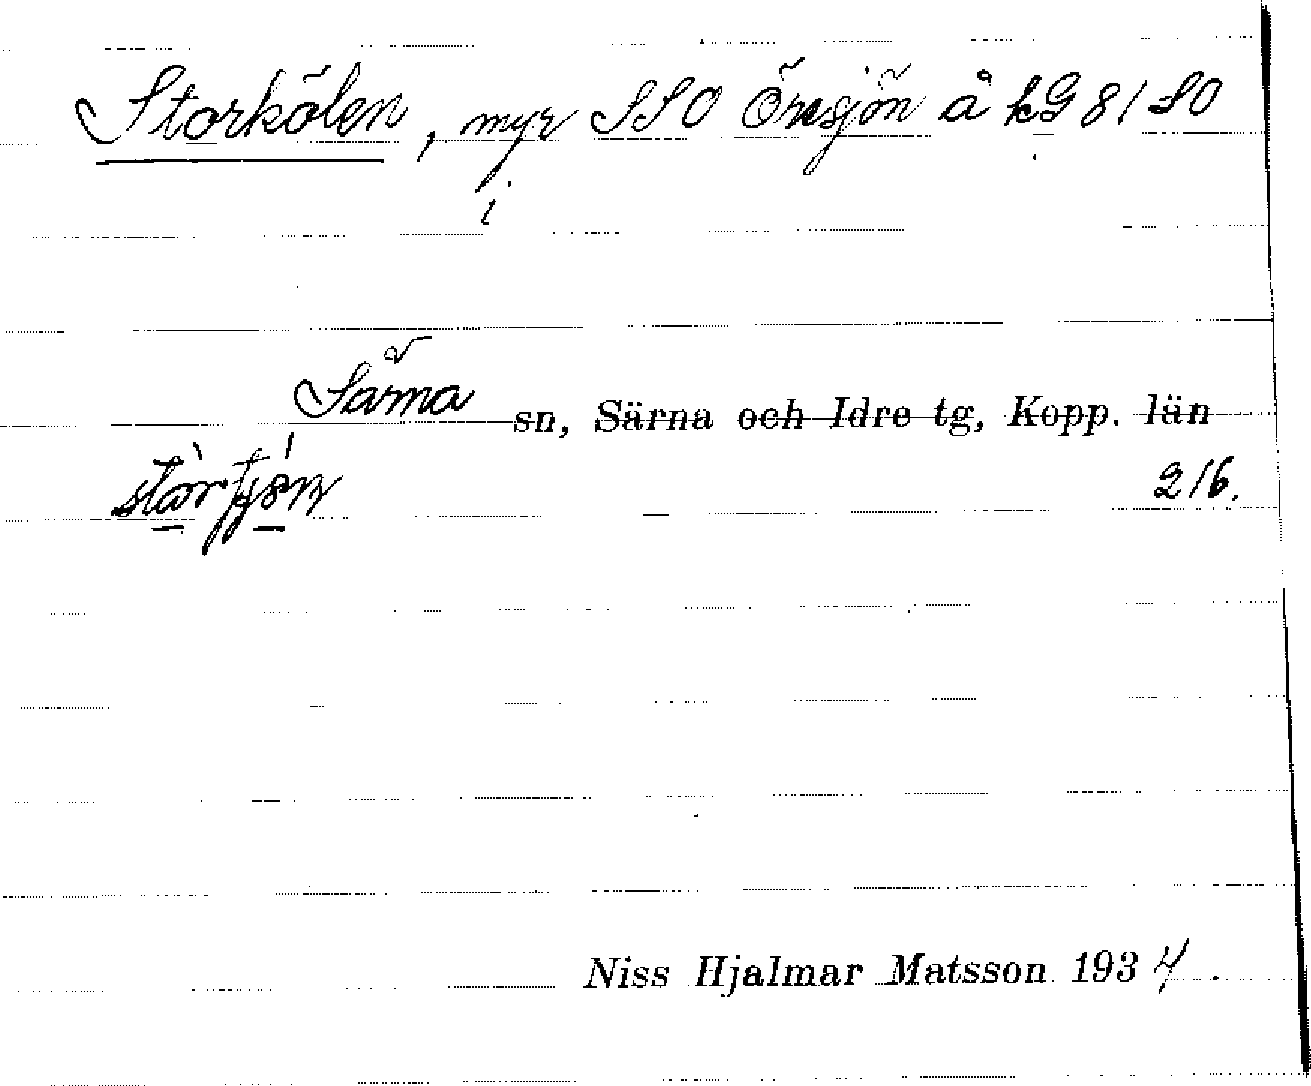 Storkölen, myr SSO Örsjön å kG 81 SO
i
Särna sn, Särna och Idre tg, Kopp. län
216.
Niss Hjalmar Matsson 1934.